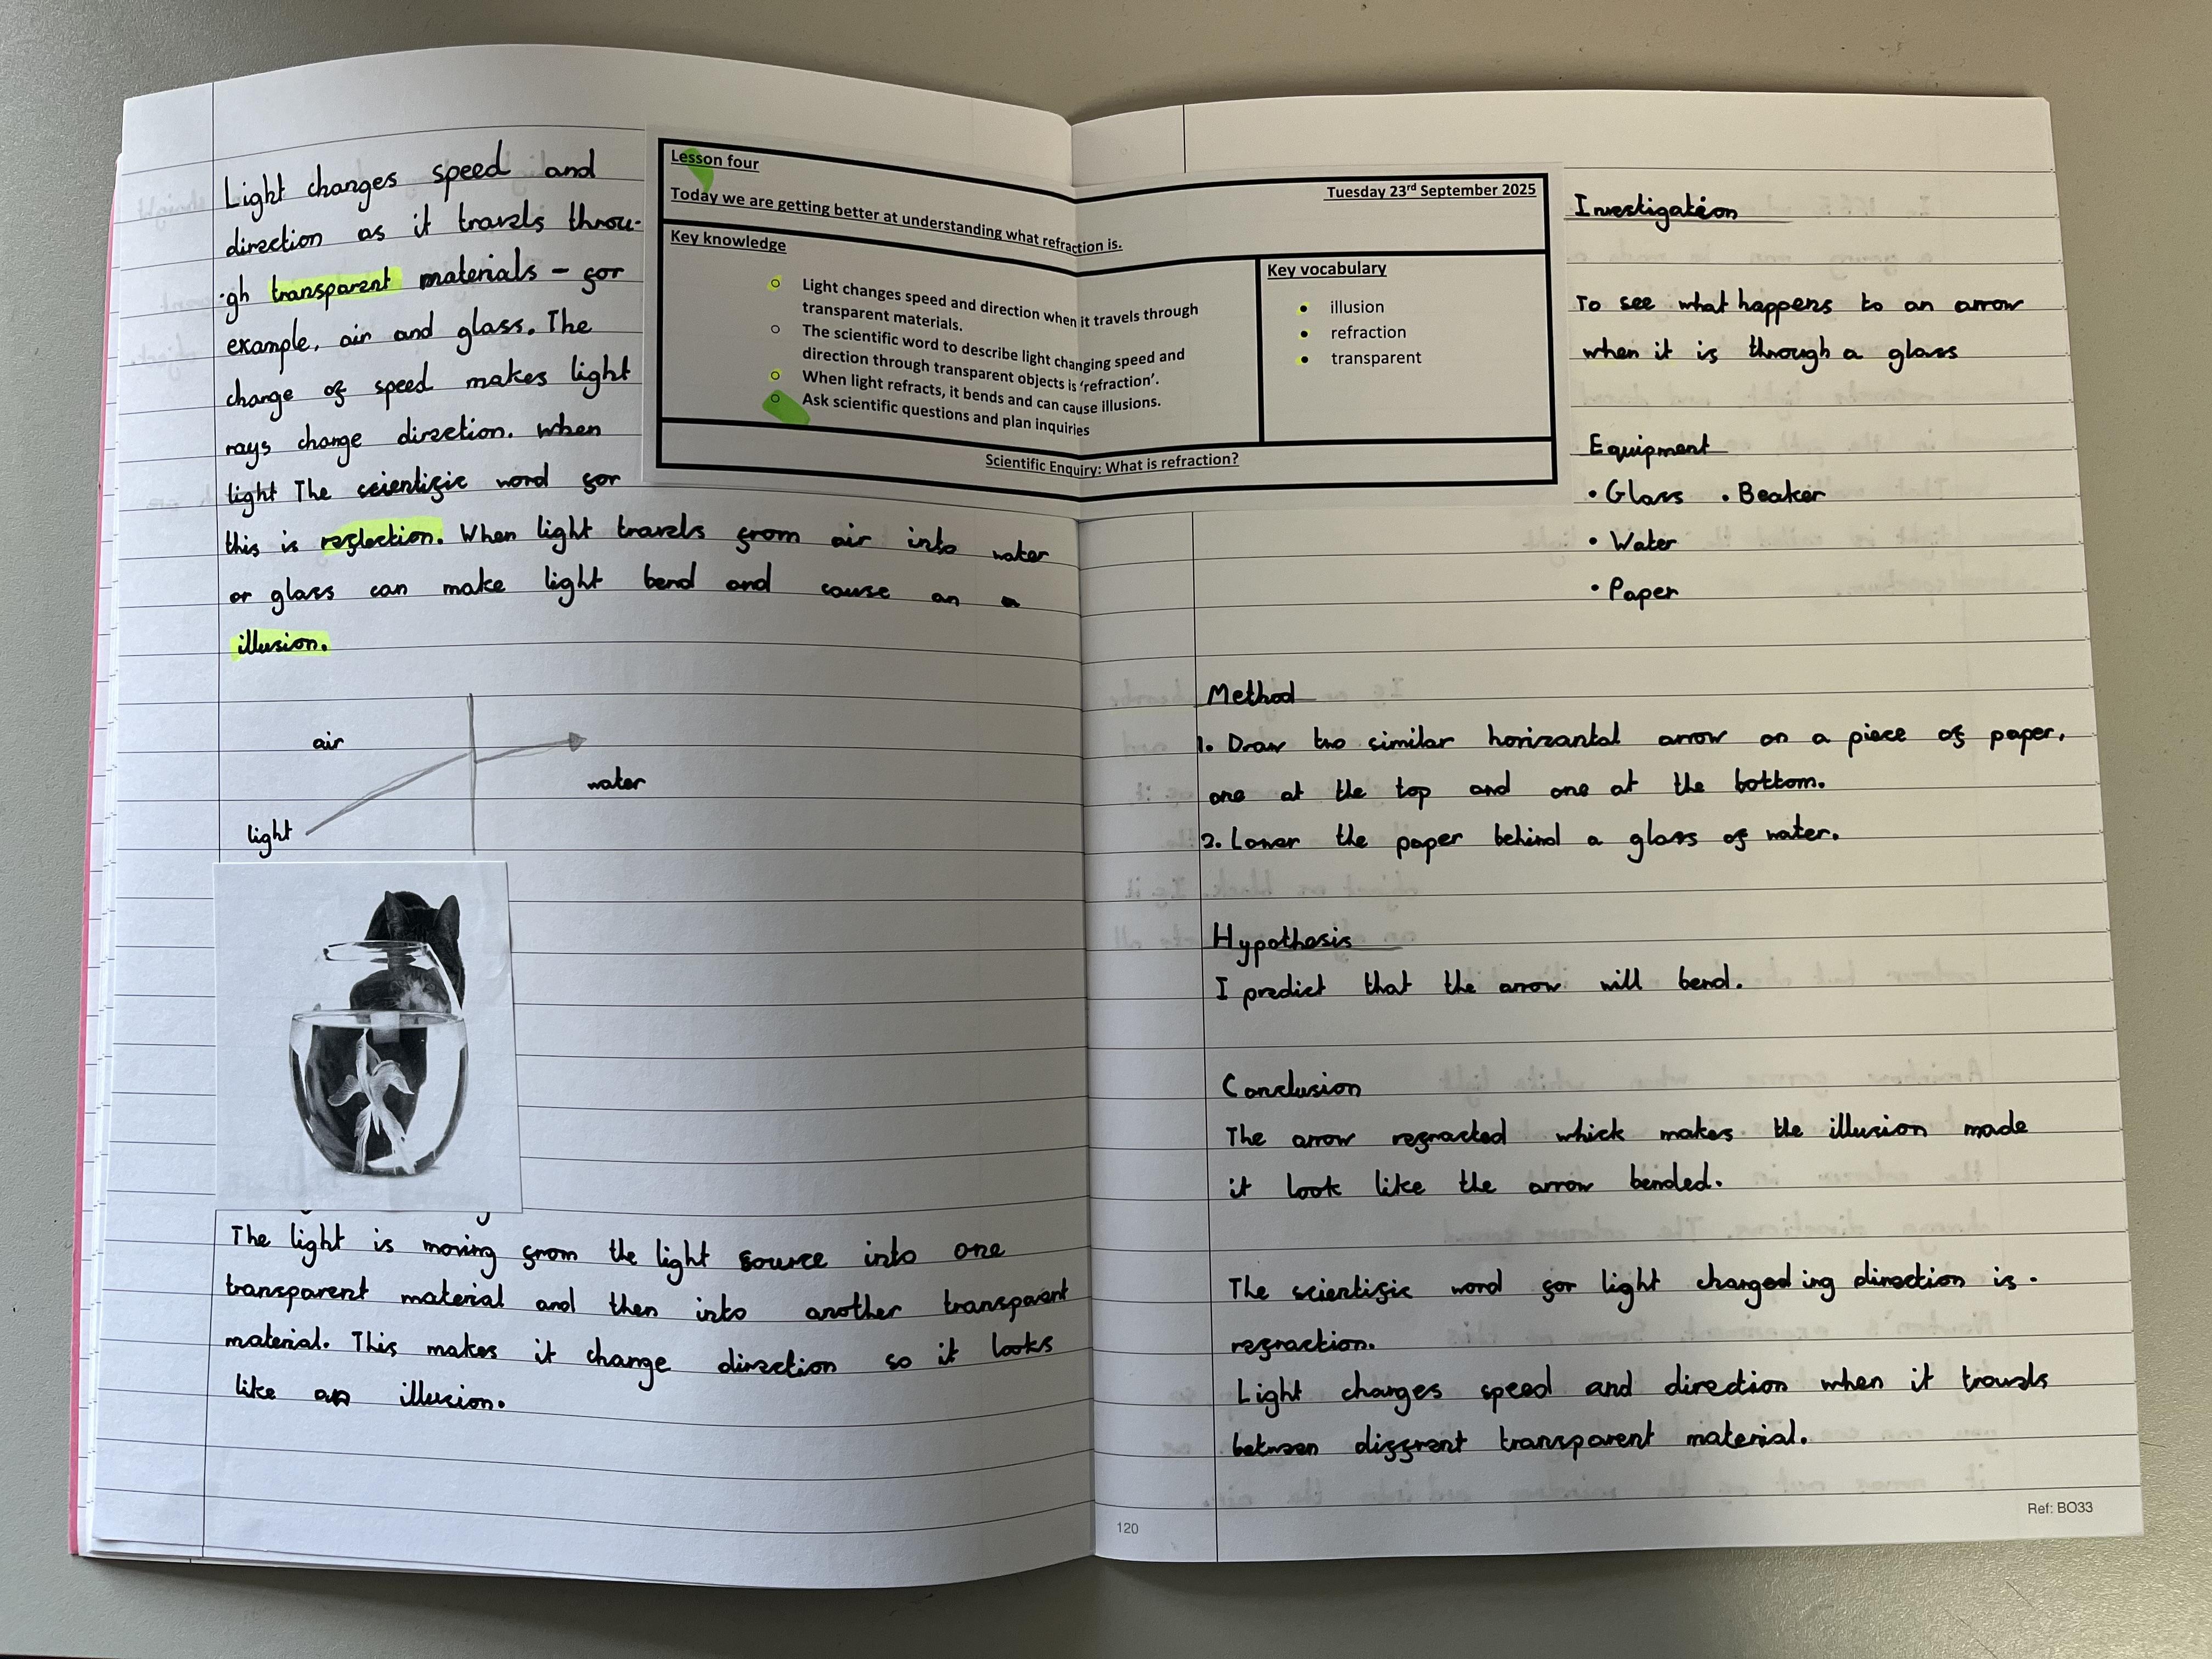 Lesson four
Tuesday 23rd September 2025
Today we are getting better at understanding what refraction is.
Key knowledge
Light changes speed and direction when it travels through
transparent materials.
The scientific word to describe light changing speed and
direction through transparent objects is ‘refraction’.
When light refracts, it bends and can cause illusions.
Ask scientific questions and plan inquiries
Key vocabulary
illusion
refraction
transparent
Scientific Enquiry: What is refraction?
Light changes speed and
direction as it travels throu-
-gh transparent materials – for
example, air and glass. The
change of speed makes light
rays change direction. When
light The scientific word for
this is reflection. When light travels from air into water
or glass can make light bend and cause an a
illusion.
air
water
light
The light is moving from the light source into one
transparent material and then into another transparent
material. This makes it change direction so it looks
like an illusion.
Investigation
To see what happens to an arrow
when it is through a glass
Equipment
• Glass • Beaker
• Water
• Paper
Method
1. Draw two similar horizantal arrow on a piece of paper,
one at the top and one at the bottom.
2. Lower the paper behind a glass of water.
Hypothesis
I predict that the arrow will bend.
Conclusion
The arrow refracted which makes the illusion made
it look like the arrow bended.
The scientific word for light changed ing direction is .
refraction.
Light changes speed and direction when it travels
between diffrent transparent material.
120
Ref: BO33